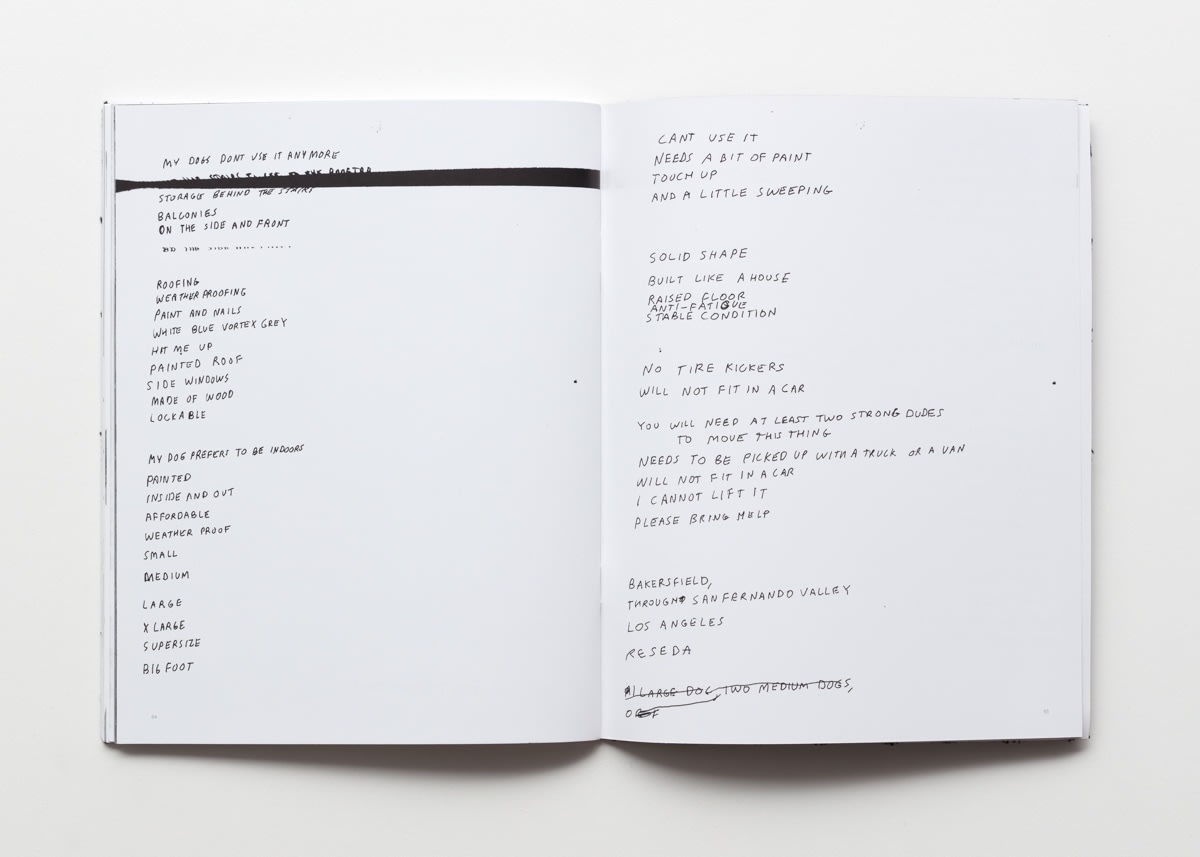 MY DOGS DONT USE IT ANYMORE
STAIRS TO THE ROOFTOP
STORAGE BEHIND THE STAIRS
BALCONIES
ON THE SIDE AND FRONT
ROOFING
WEATHERPROOFING
PAINT AND NAILS
WHITE BLUE VORTEX GREY
HIT ME UP
PAINTED ROOF
SIDE WINDOWS
MADE OF WOOD
LOCKABLE
MY DOG PREFERS TO BE INDOORS
PAINTED
INSIDE AND OUT
AFFORDABLE
WEATHER PROOF
SMALL
MEDIUM
LARGE
X LARGE
SUPERSIZE
BIGFOOT
CANT USE IT
NEEDS A BIT OF PAINT
TOUCH UP
AND A LITTLE SWEEPING
SOLID SHAPE
BUILT LIKE A HOUSE
RAISED FLOOR
ANTI-FATIGUE
STABLE CONDITION
NO TIRE KICKERS
WILL NOT FIT IN A CAR
YOU WILL NEED AT LEAST TWO STRONG DUDES
TO MOVE THIS THING
NEEDS TO BE PICKED UP WITH A TRUCK OR A VAN
WILL NOT FIT IN A CAR
I CANNOT LIFT IT
PLEASE BRING HELP
BAKERSFIELD,
THROUGH SAN FERNANDO VALLEY
LOS ANGELES
RESEDA
LARGE DOG, TWO MEDIUM DOGS,